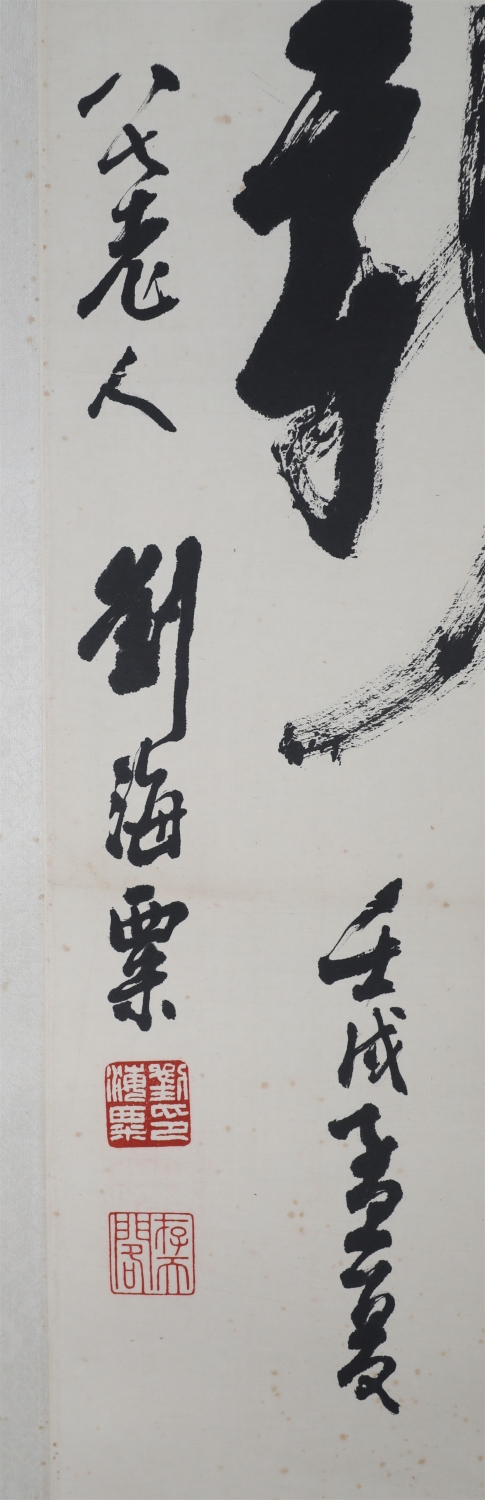 壬戌孟夏
八七老人 劉海粟
劉印
海粟
存天
閣